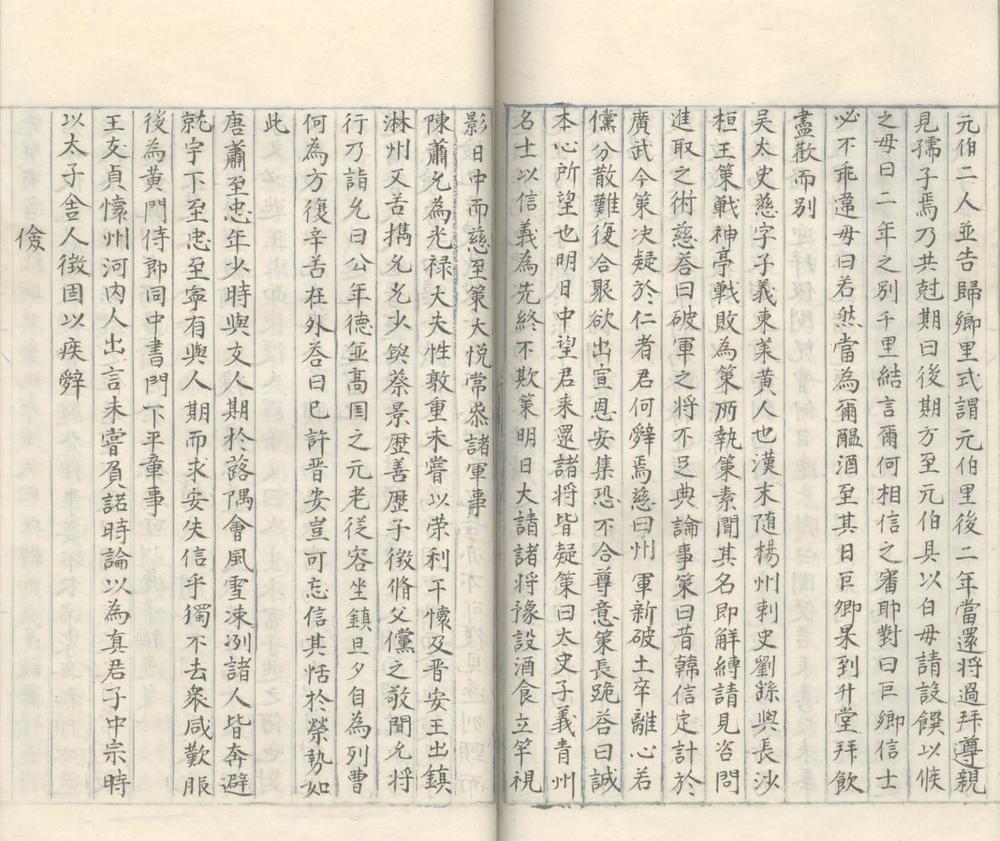 元伯二人並告歸鄉里式謂元伯里後二年當還將過拜尊親
見孺子焉乃共尅期曰後期方至元伯具以白母請設饌以候
之母曰二年之別千里結言爾何相信之審耶對曰巨卿信士
必不乖違母曰若然當為爾醞酒至其日巨卿果到升堂拜飲
盡歡而别
吴太史慈字子義東萊黄人也漢末随楊州刺史劉繇與長沙
桓王策戰神亭戰敗為策所執策素聞其名即解縳請見咨問
進取之術慈荅曰破軍之將不足典論事策曰昔韓信定計於
廣武今策决疑於仁者君何辤焉慈曰州軍新破士卒離心若
儻分散難復合聚欲出宣恩安集恐不合尊意策長跪荅曰誠
本心所望也明日中望君来還諸將皆疑策曰太史子義青州
名士以信義為先終不欺策明日大請諸將豫設酒食立竿視
影日中而慈至策大悦常叅諸軍事
陳蕭允為光禄大夫性敦重未嘗以荣利干懷及晋安王出鎮
淋州又苦攜允允少與蔡景歷善歷子徵脩父儻之敬聞允將
行乃詣允曰公年德並高国之元老從容坐鎮旦夕自為列曹
何為方復辛苦在外荅曰已許晋安豈可忘信其恬於榮勢如
此
唐蕭至忠年少時與友人期於路隅會風雪凍冽諸人皆奔避
就宇下至忠至寧有與人期而求安失信乎獨不去衆咸歎服
後為黄門侍郎同中書門下平章事
王友貞懷州河内人出言未嘗負諾時論以為真君子中宗時
以太子舍人徵固以疾辤
儉